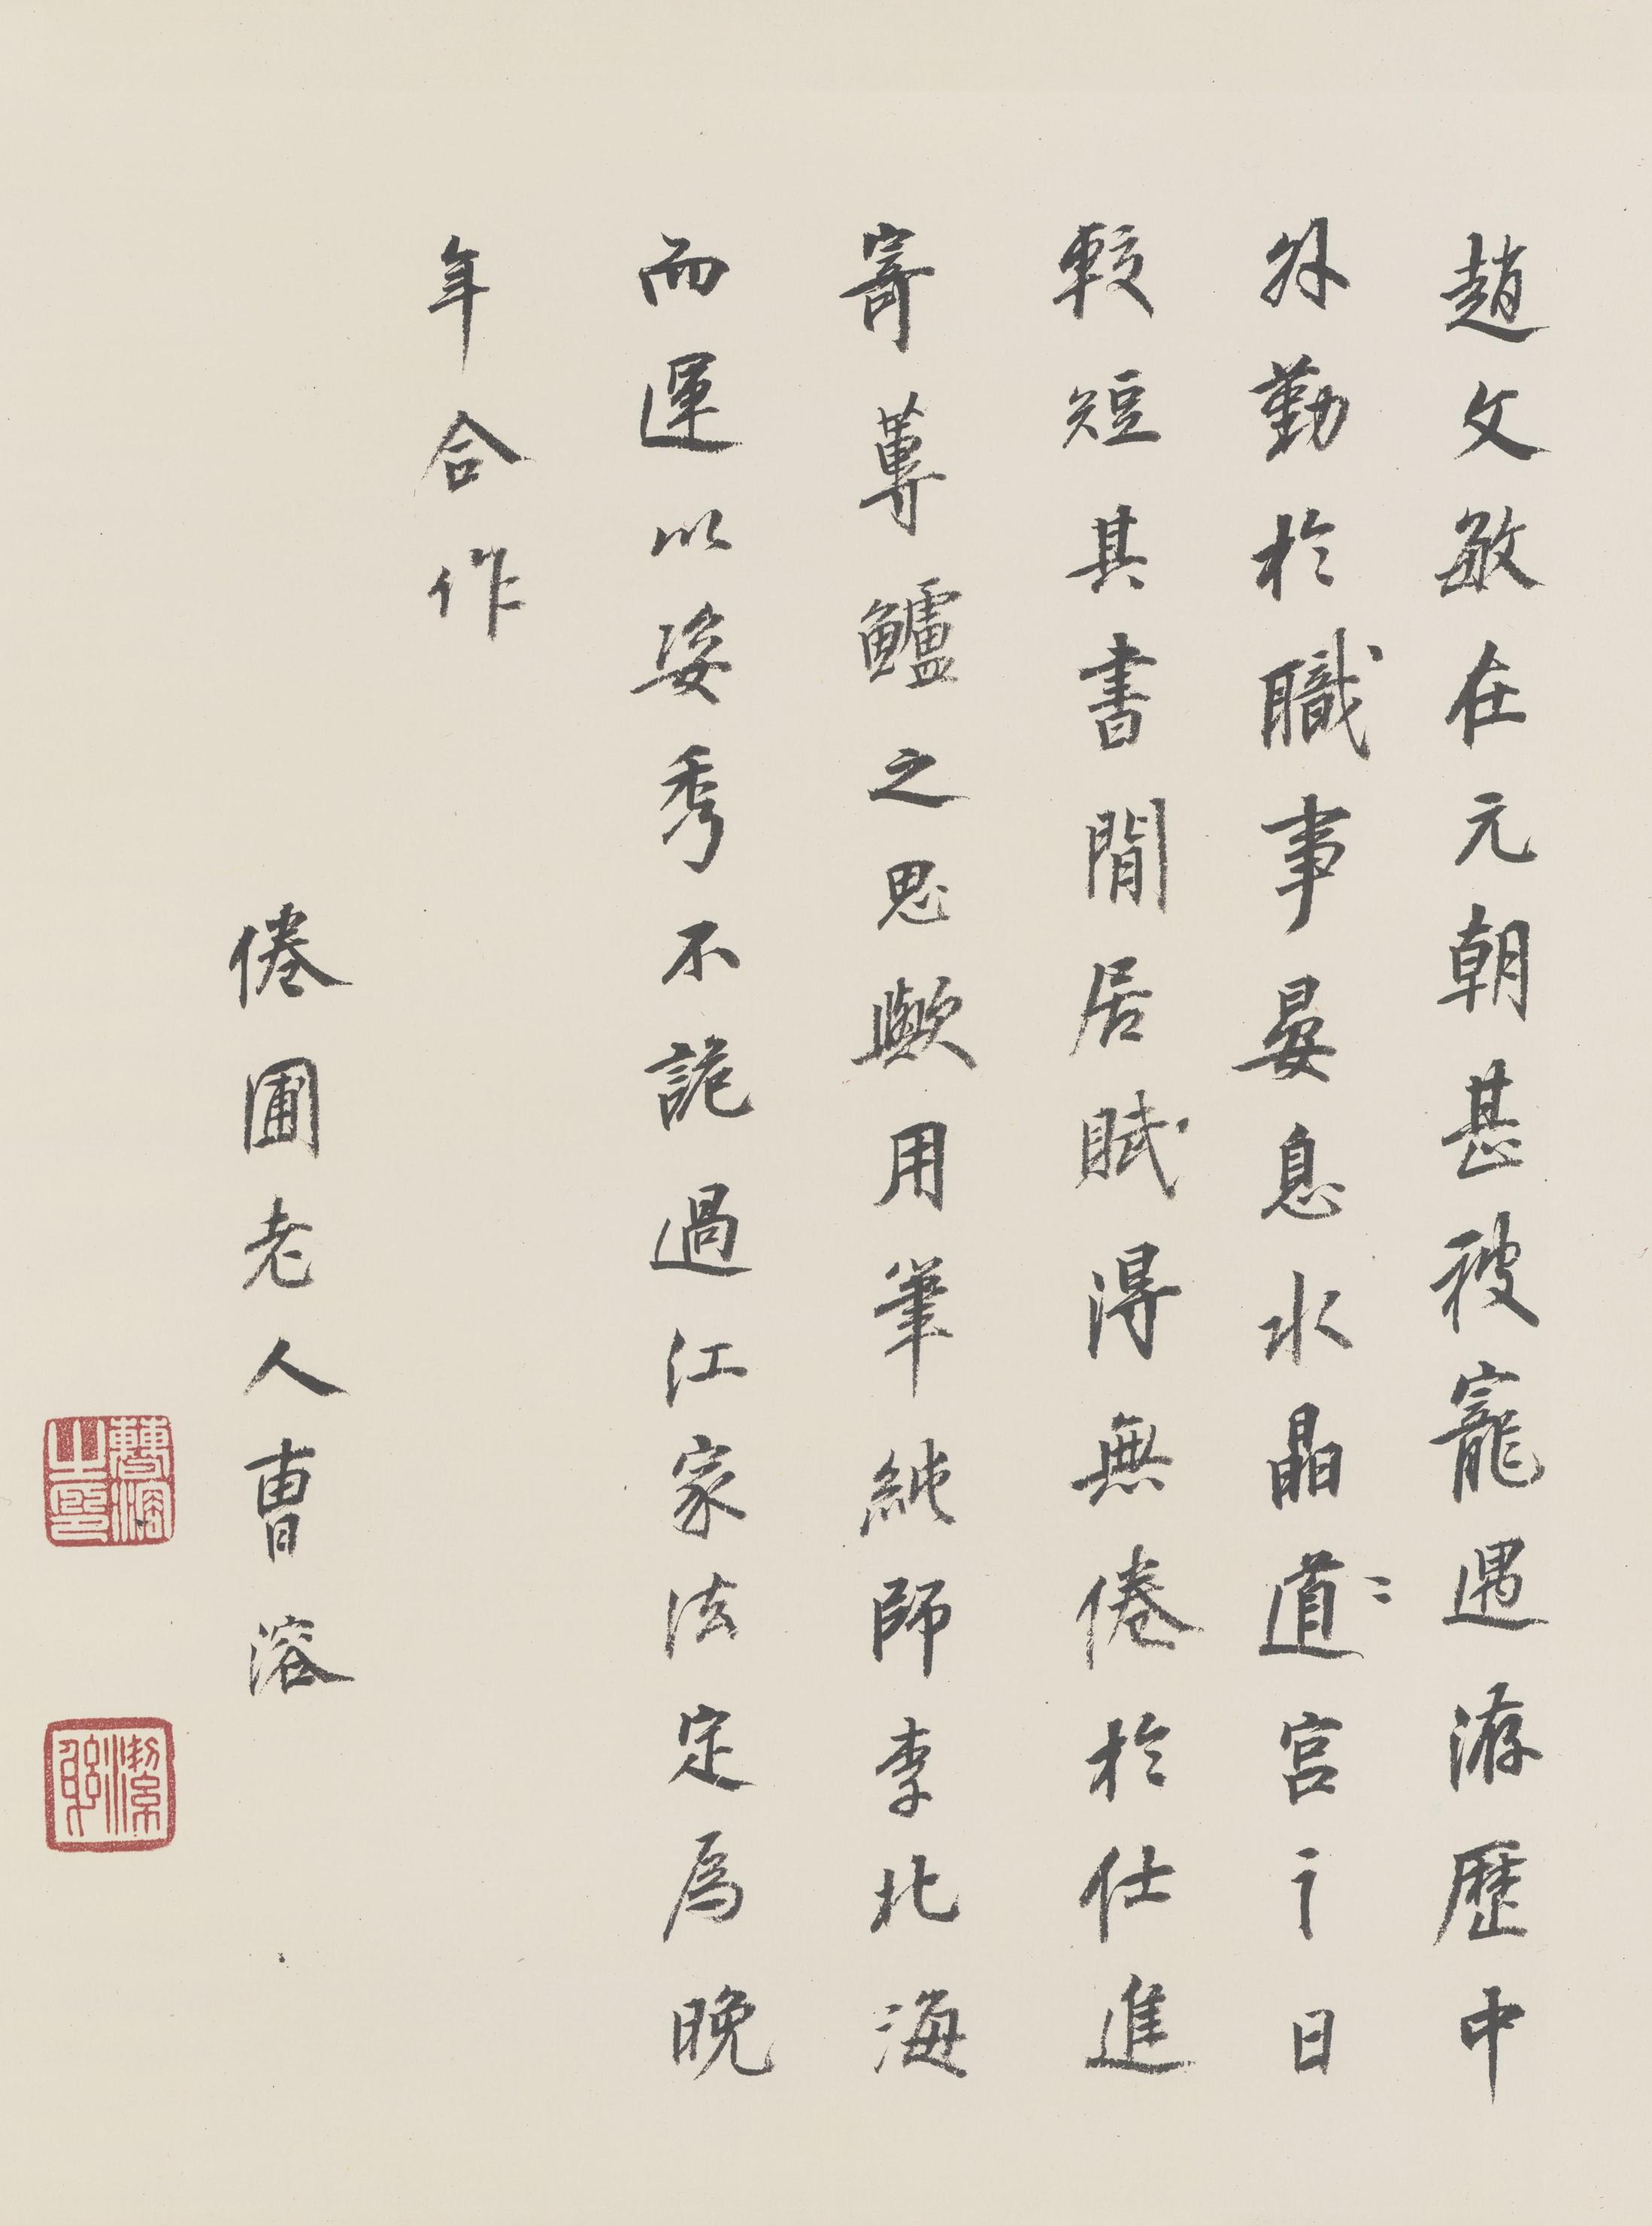 趙文敏在元朝甚被寵遇游歷中
外勤於職事晏息水晶道宮之日
較短其書閒居賦得無倦於仕進
寄蓴鱸之思歟用筆純師李北海
而運以姿秀不詭過江家法定為晚
年合作
倦圃老人曹溶
曹溶之印
潔躬